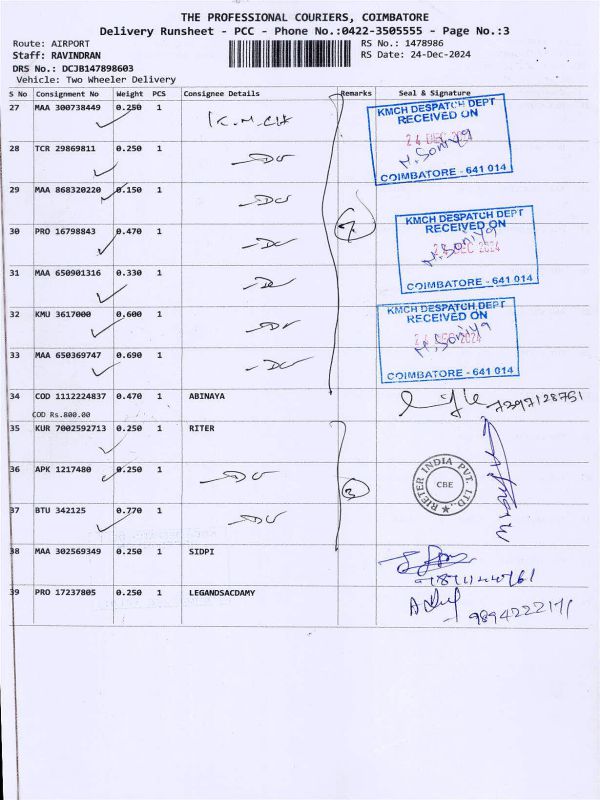 THE PROFESSIONAL COURIERS, COIMBATORE
Delivery Runsheet - PCC - Phone No.:0422-3505555 - Page No.:3
Route: AIRPORT RS No.: 1478986
Staff: RAVINDRAN RS Date: 24-Dec-2024
DRS No.: DCJB147898603
Vehicle: Two Wheeler Delivery
S No Consignment No Weight PCS Consignee Details Remarks Seal & Signature
27 MAA 300738449 0.250 1 K.M.CH
KMCH DESPATCH DEPT
RECEIVED ON
24 DEC 2024
M. Soniya
COIMBATORE - 641 014
28 TCR 29869811 0.250 1
29 MAA 868320220 0.150 1
30 PRO 16798843 0.470 1
7
KMCH DESPATCH DEPT
RECEIVED ON
24 DEC 2024
M. Soniya
COIMBATORE - 641 014
31 MAA 650901316 0.330 1
32 KMU 3617000 0.600 1
KMCH DESPATCH DEPT
RECEIVED ON
24 DEC 2024
M. Soniya
COIMBATORE - 641 014
33 MAA 650369747 0.690 1
34 COD 1112224837 0.470 1 ABINAYA 7397128751
COD Rs.800.00
35 KUR 7002592713 0.250 1 RITER
36 APK 1217480 0.250 1
3
RIETER INDIA PVT. LTD.,
CBE
37 BTU 342125 0.770 1
38 MAA 302569349 0.250 1 SIDPI
39 PRO 17237805 0.250 1 LEGANDSACDAMY
9894222171